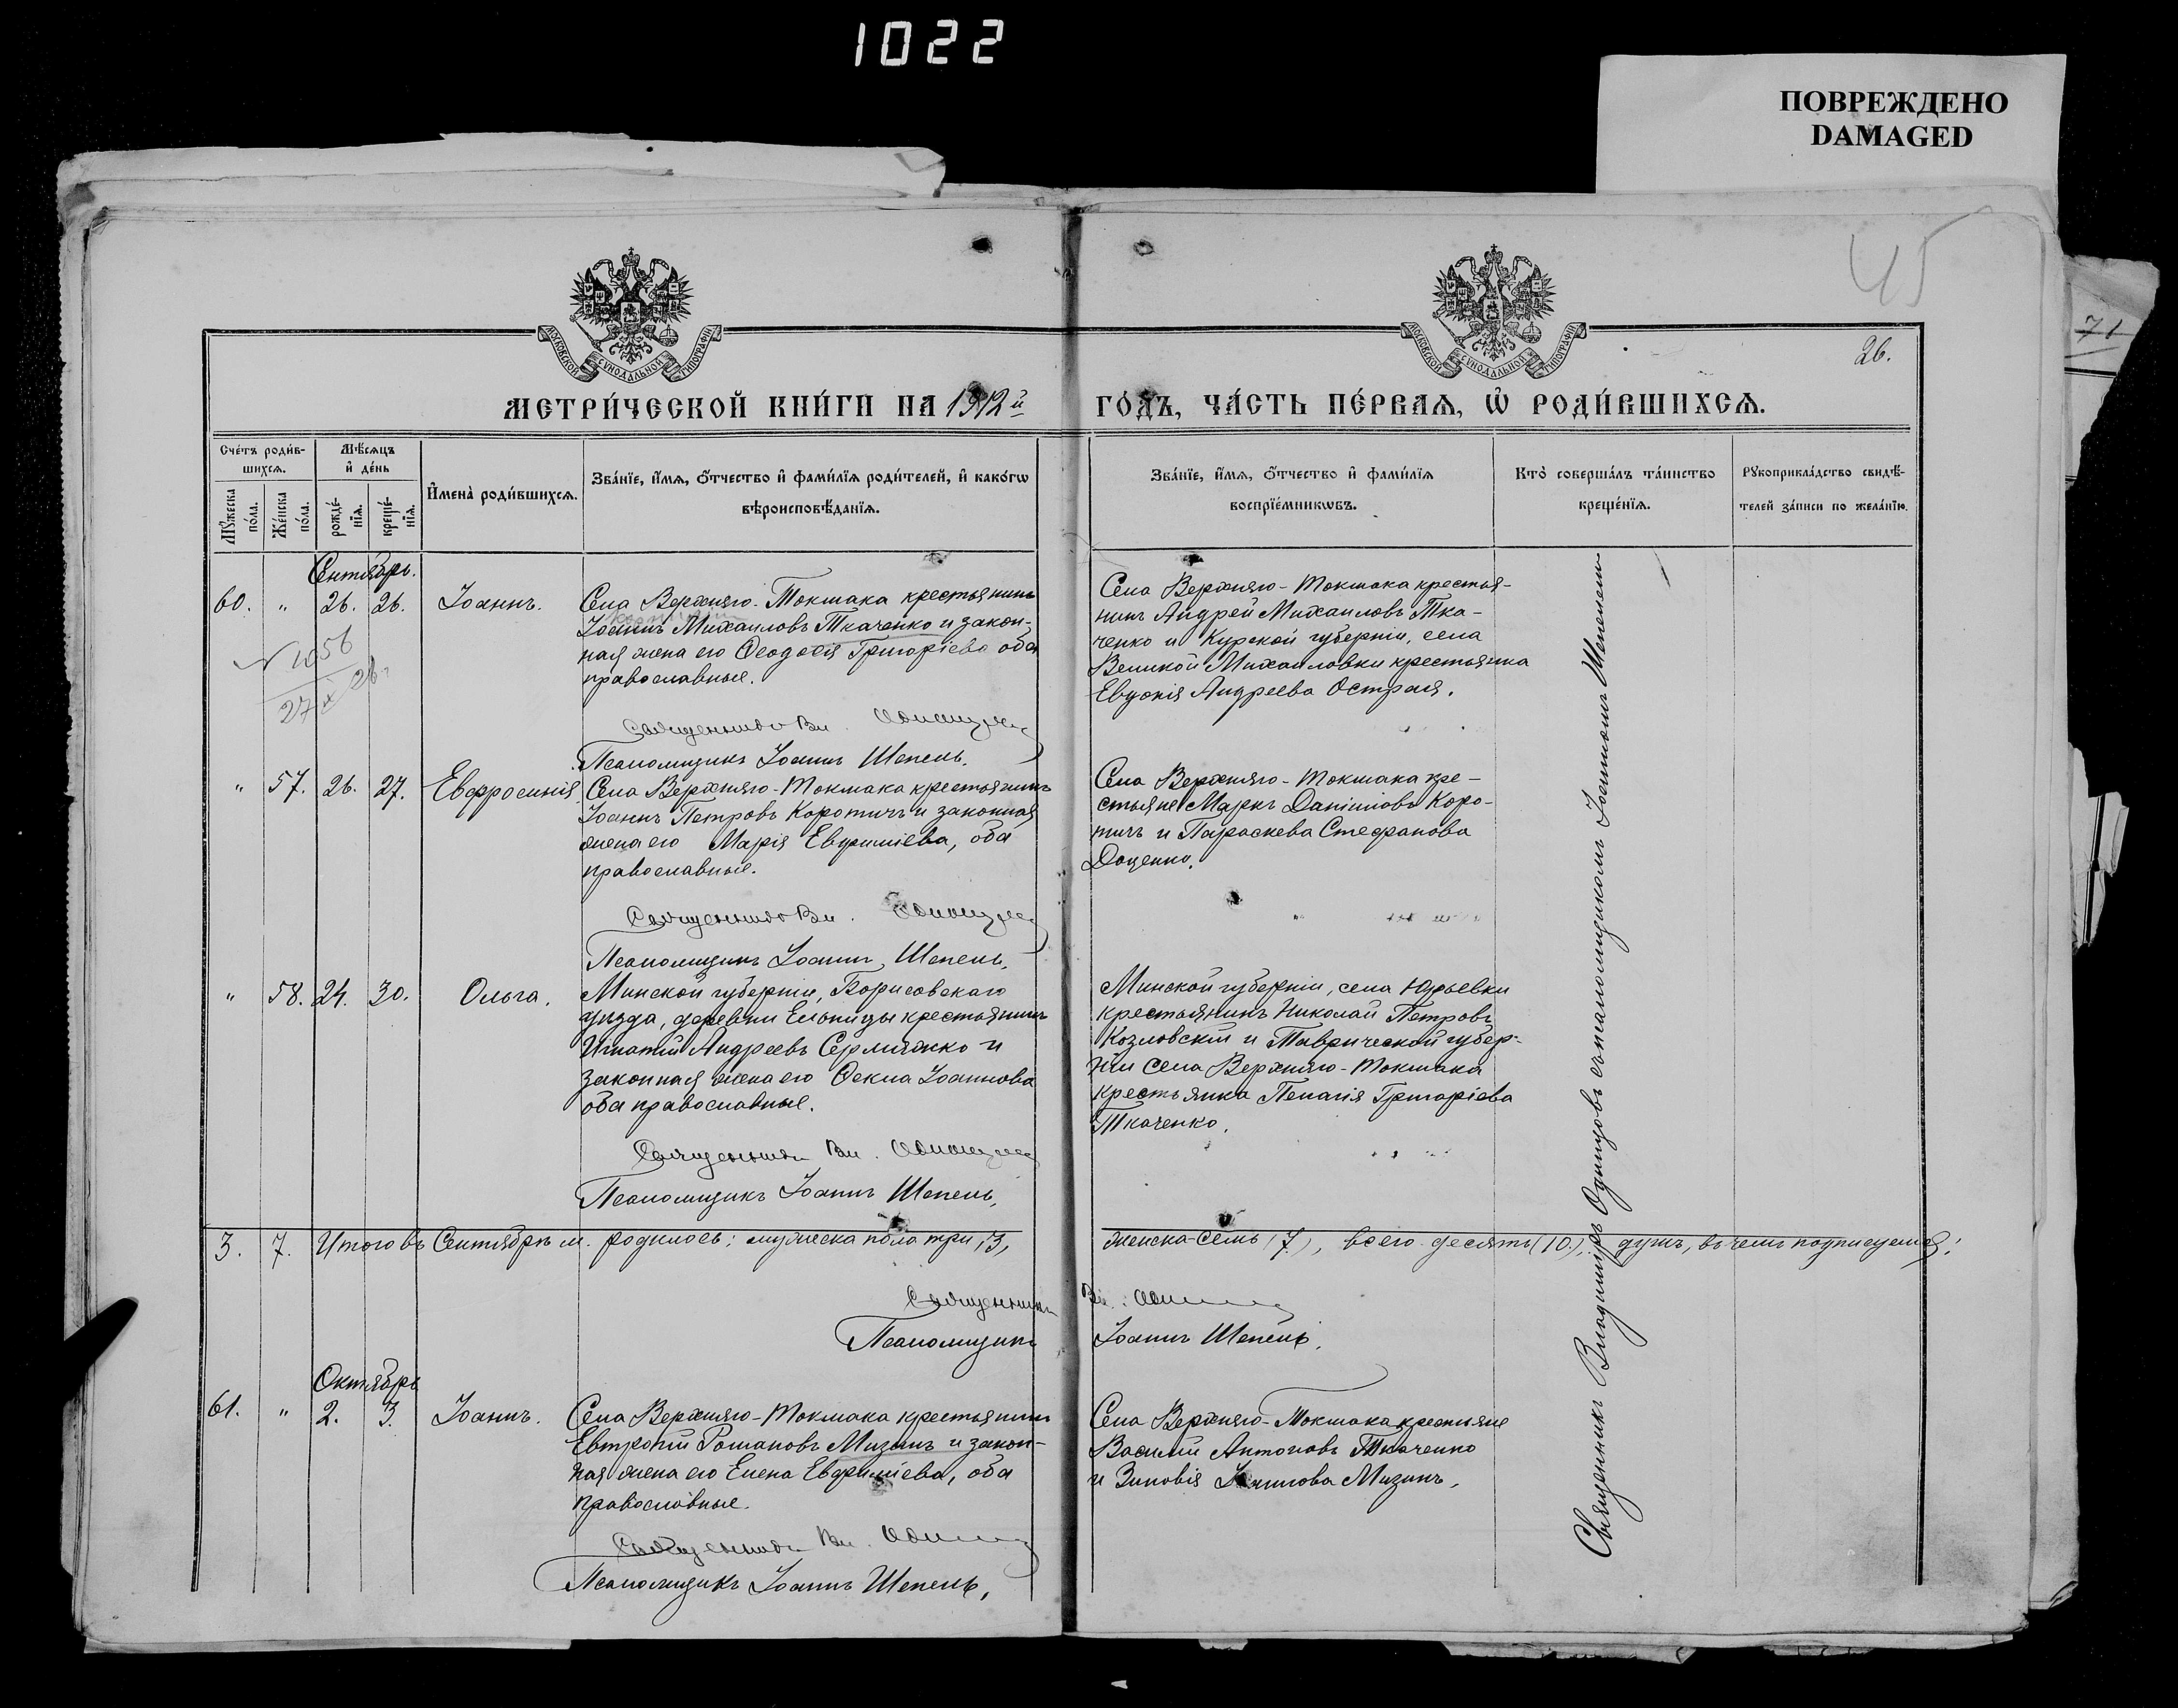 1022
ПОВРЕЖДЕНО
DAMAGED
45
71
26.
МОСКОВСКОЙ СУНОДАЛЬНОЙ ТИПОГРАФІИ
МОСКОВСКОЙ СУНОДАЛЬНОЙ ТИПОГРАФІИ
МЕТРИ́ЧЕСКОЙ КНИ́ГИ НА 1912й ГО́ДЪ, ЧА́СТЬ ПЕ́РВАѦ, Ѡ РОДИ́ВШИХСѦ.
Сче́тъ роди́в-
шихсѧ.
Мѣ́сѧцъ
и де́нь
Мꙋ́жеска
по́ла.
Же́нска
по́ла.
рожде́-
нїѧ.
креще́-
нїѧ.
Имена̀ роди́вшихсѧ.
Зва́нїе, и́мѧ, о́тчество и фами́лїѧ роди́телей, и како́гѡ
вѣроисповѣ́данїѧ.
Зва́нїе, и́мѧ, о́тчество и фами́лїѧ
воспрїе́мникѡвъ.
Кто̀ соверша́лъ та́инство
креще́нїѧ.
Рꙋкоприкла́дство свидѣ́-
телей за́писи по жела́нїю.
Сентябрь.
60. " 26. 26. Іоаннъ.
Села Верхняго-Токмака крестьянинъ
Іоаннъ Михаиловъ Ткаченко и закон-
ная жена его Ѳеодосія Григоріева оба
православные.
Священникъ Вл. Одинцовъ
Псаломщикъ Іоаннъ Шепель.
Села Верхняго-Токмака крестья-
нинъ Андрей Михаиловъ Тка-
ченко и Курской губерніи, села
Великой Михаиловки крестьянка
Евдокія Андреева Острая.
N 1056
27 X 26 г
" 57. 26. 27. Евфросинія
Села Верхняго-Токмака крестьянинъ
Іоаннъ Петровъ Коротичъ и законная
жена его Марія Евфиміева, оба
православные.
Священникъ Вл. Одинцовъ
Псаломщикъ Іоаннъ Шепель.
Села Верхняго-Токмака кре-
стьяне Маркъ Даніиловъ Коро-
тичъ и Параскева Стефанова
Доценко.
" 58. 24. 30. Ольга.
Минской губерніи, Борисовскаго
уѣзда, деревни Ельницы крестьянинъ
Игнатій Андреевъ Сермяжко и
законная жена его Ѳекла Іоаннова
оба православные.
Священникъ Вл. Одинцовъ
Псаломщикъ Іоаннъ Шепель.
Минской губерніи, села Юрьевки
крестьянинъ Николай Петровъ
Козловскій и Таврической губер-
ніи села Верхняго-Токмака
крестьянка Пелагія Григоріева
Ткаченко.
3. 7. Итого въ Сентябрѣ м. родилось: мужеска пола три (3), женска семь (7), всего десять (10), душъ, въ чемъ подписуемся:
Священникъ Вл. Одинцовъ
Псаломщикъ Іоаннъ Шепель.
Октябрь
61. " 2. 3. Іоаннъ.
Села Верхняго-Токмака крестьянинъ
Евтропій Романовъ Мизинъ и закон-
ная жена его Елена Евфиміева, оба
православные.
Священникъ Вл. Одинцовъ
Псаломщикъ Іоаннъ Шепель.
Села Верхняго-Токмака крестьяне
Василій Антоновъ Ткаченко
и Зиновія Мизинъ.
Священникъ Владиміръ Одинцовъ съ псаломщикомъ Іоанномъ Шепелемъ